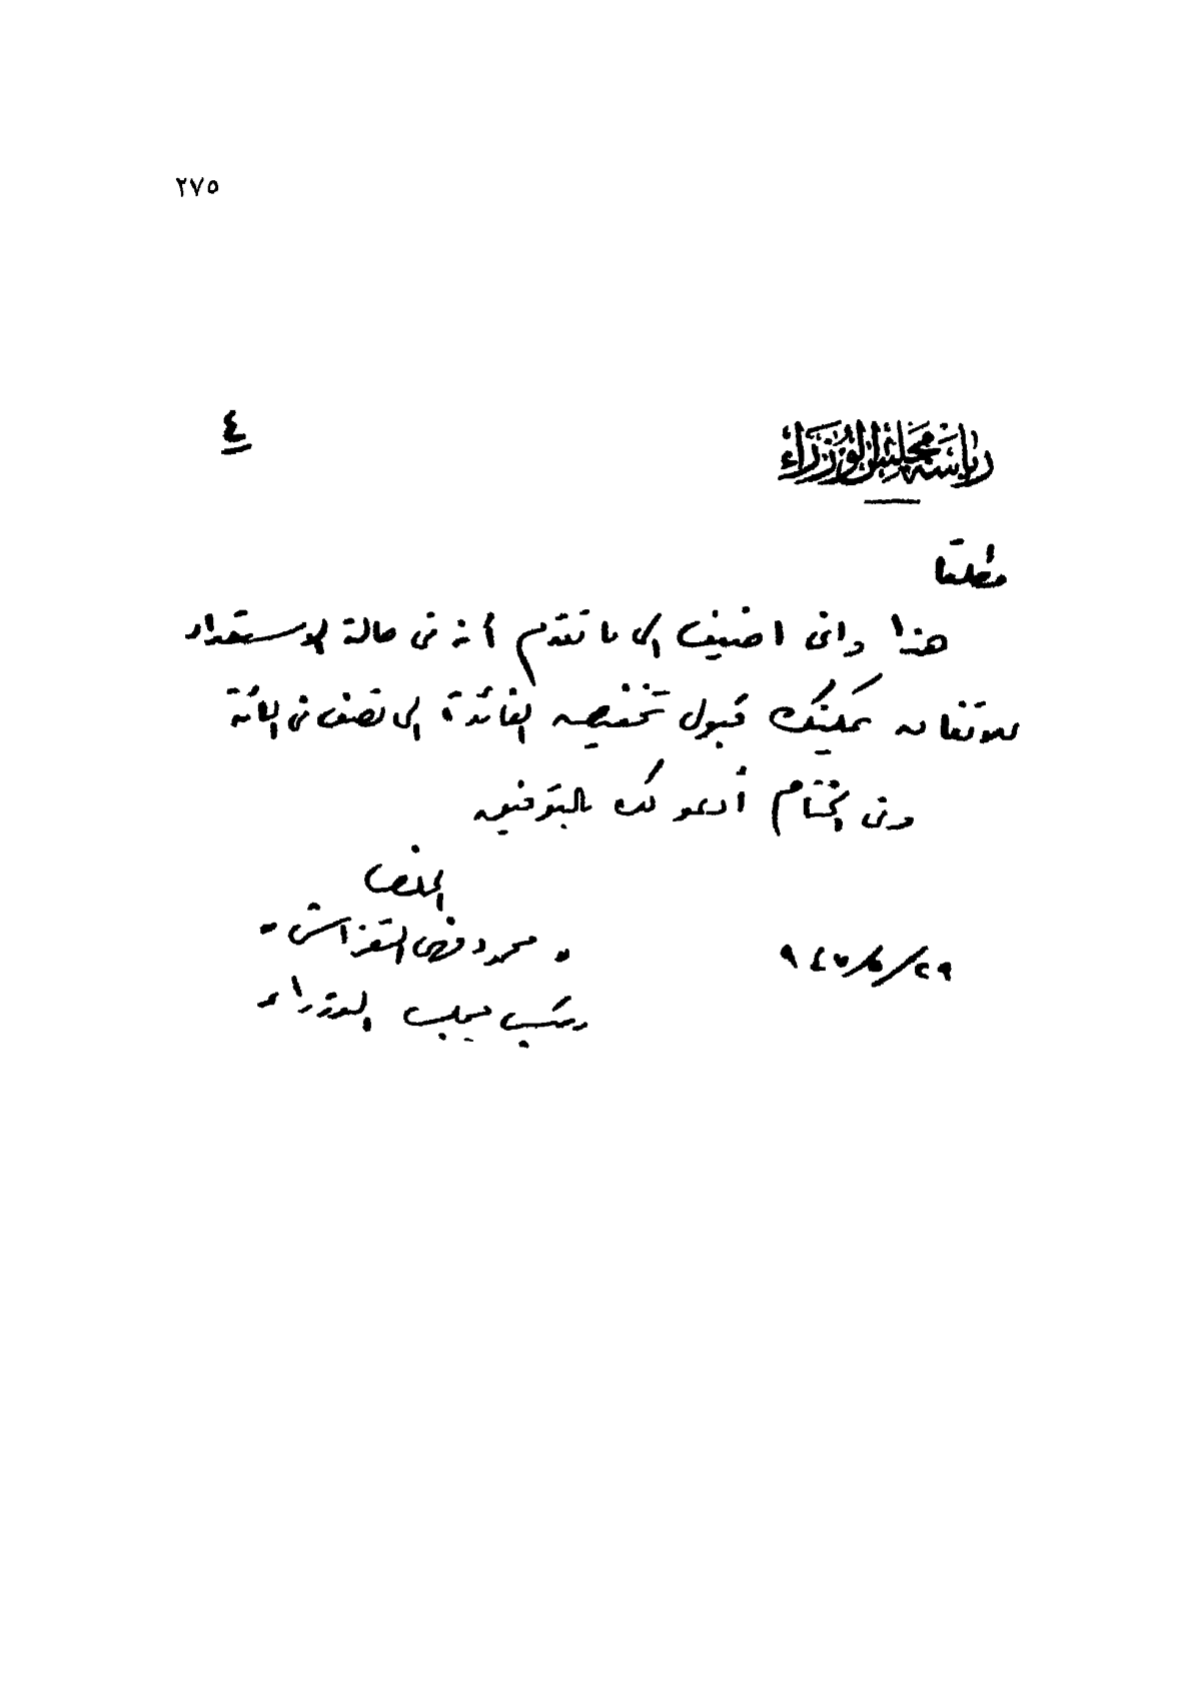 ٢٧٥
٤
رياسة مجلس الوزراء
مطلقا
هذا وانى اضيف الى ما تقدم أنه فى حالة الاستعداد
للاتفاق يمكنك قبول تخفيض الفائدة الى نصف فى المائة
وفى الختام أدعو لك بالتوفيق
المخلص
" محمود فهمى النقراشى "
رئيس مجلس الوزراء
٢٩/٥/٩٤٧